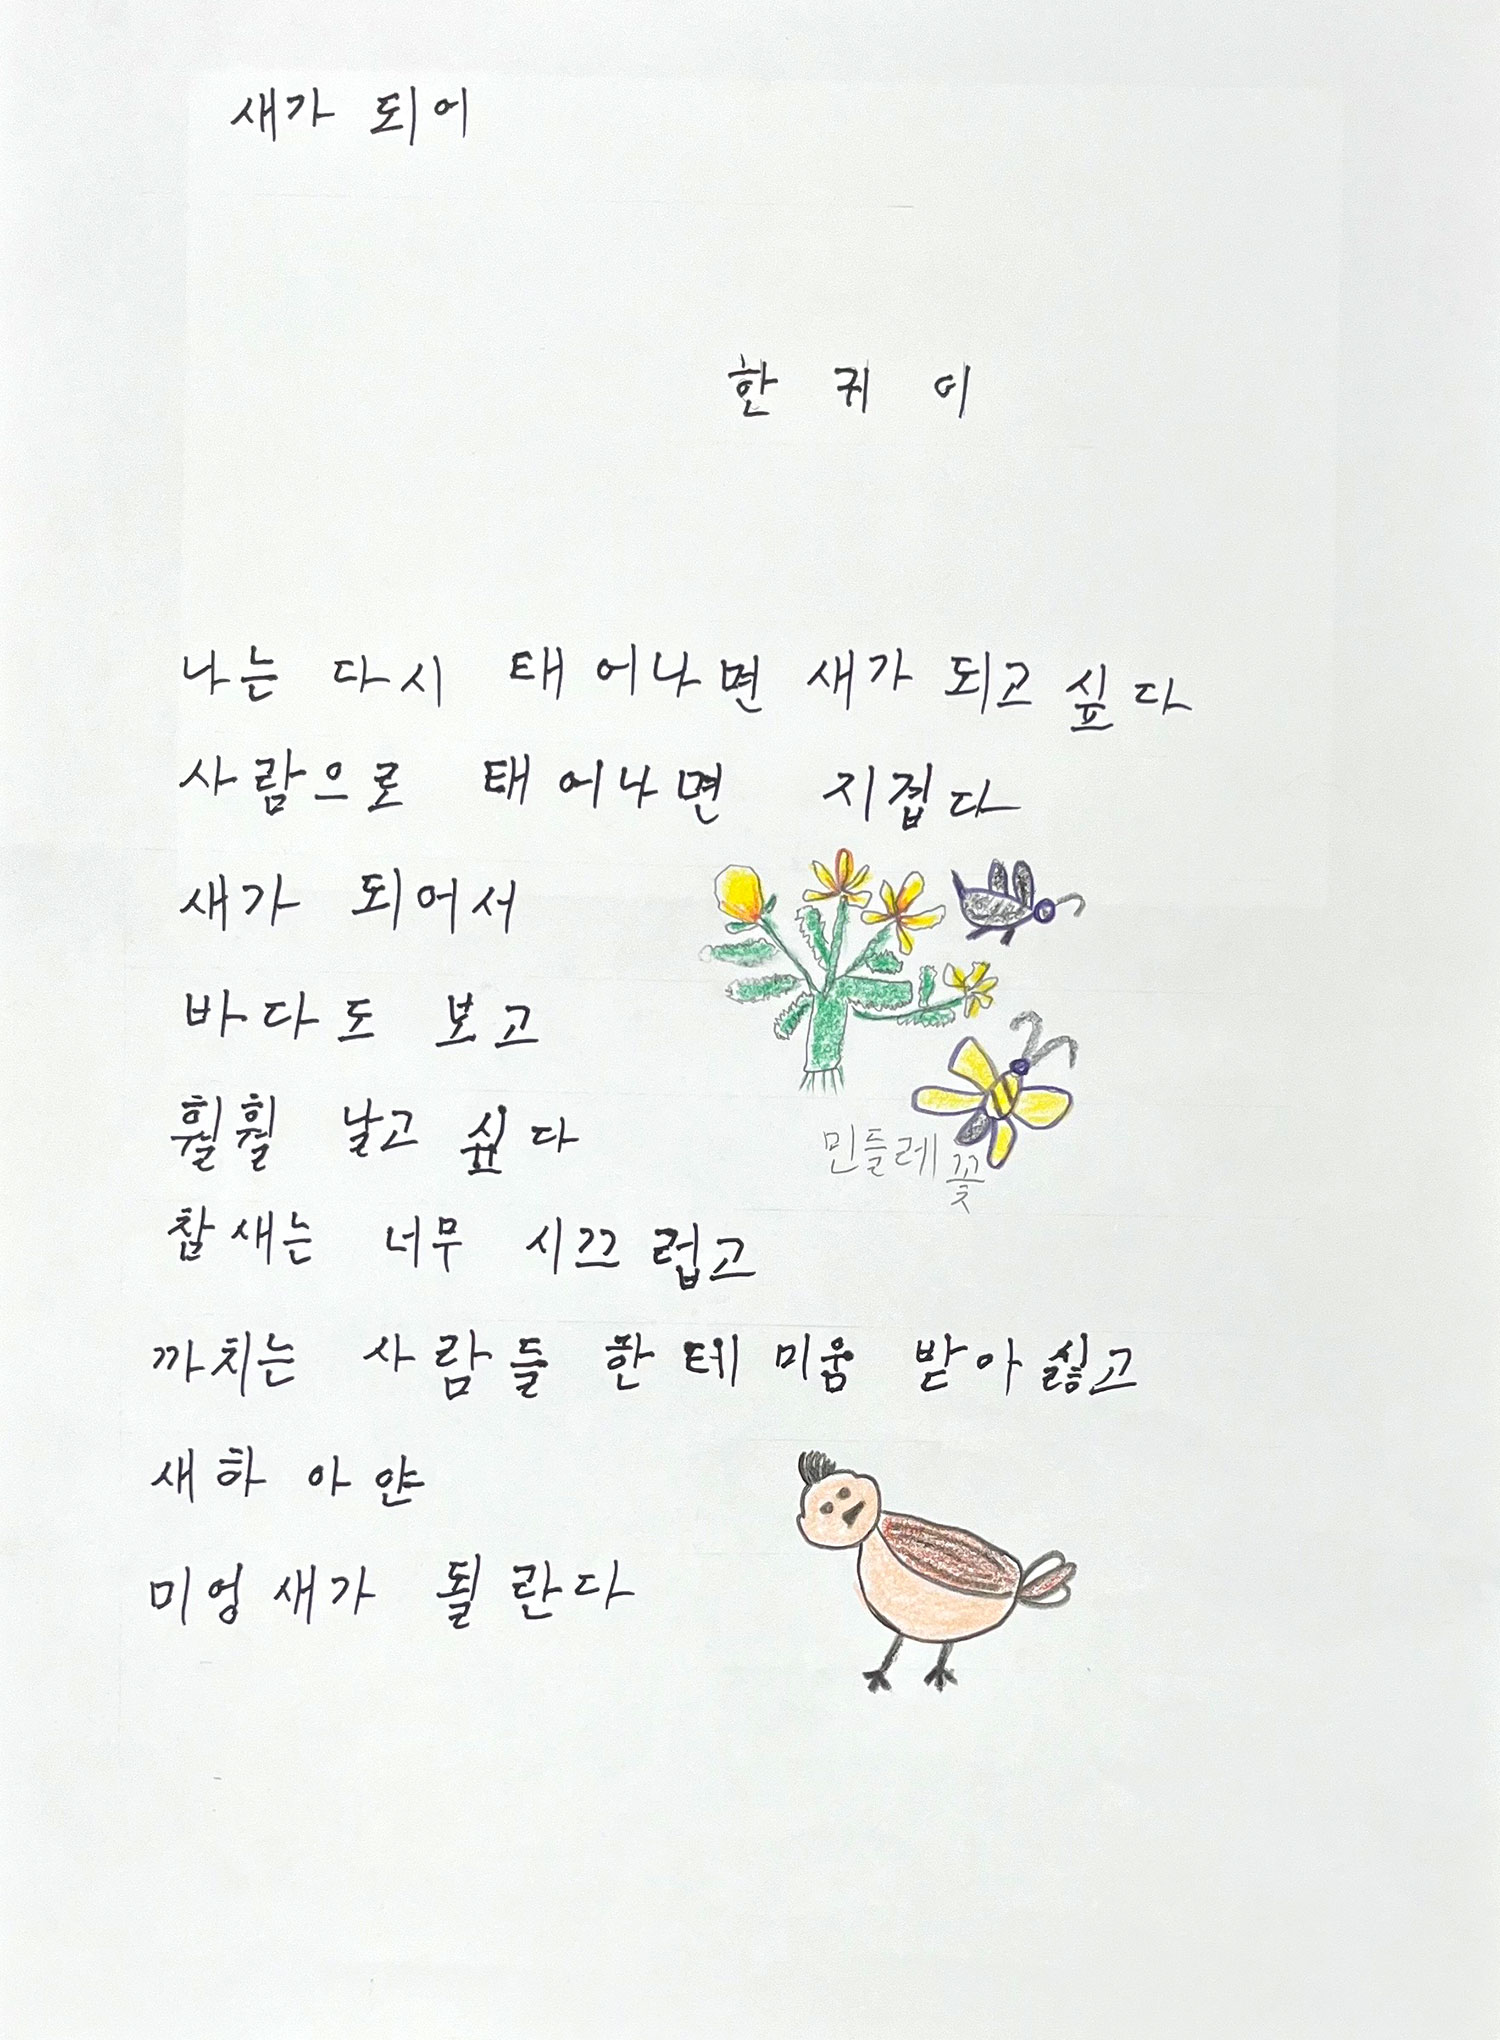 새가 되어
한귀이
나는 다시 태어나면 새가 되고 싶다
사람으로 태어나면 지겹다
새가 되어서
바다도 보고
훨훨 날고 싶다
민들레꽃
참새는 너무 시끄럽고
까치는 사람들 한테 미움 받아 싫고
새하아얀
미엉새가 될란다